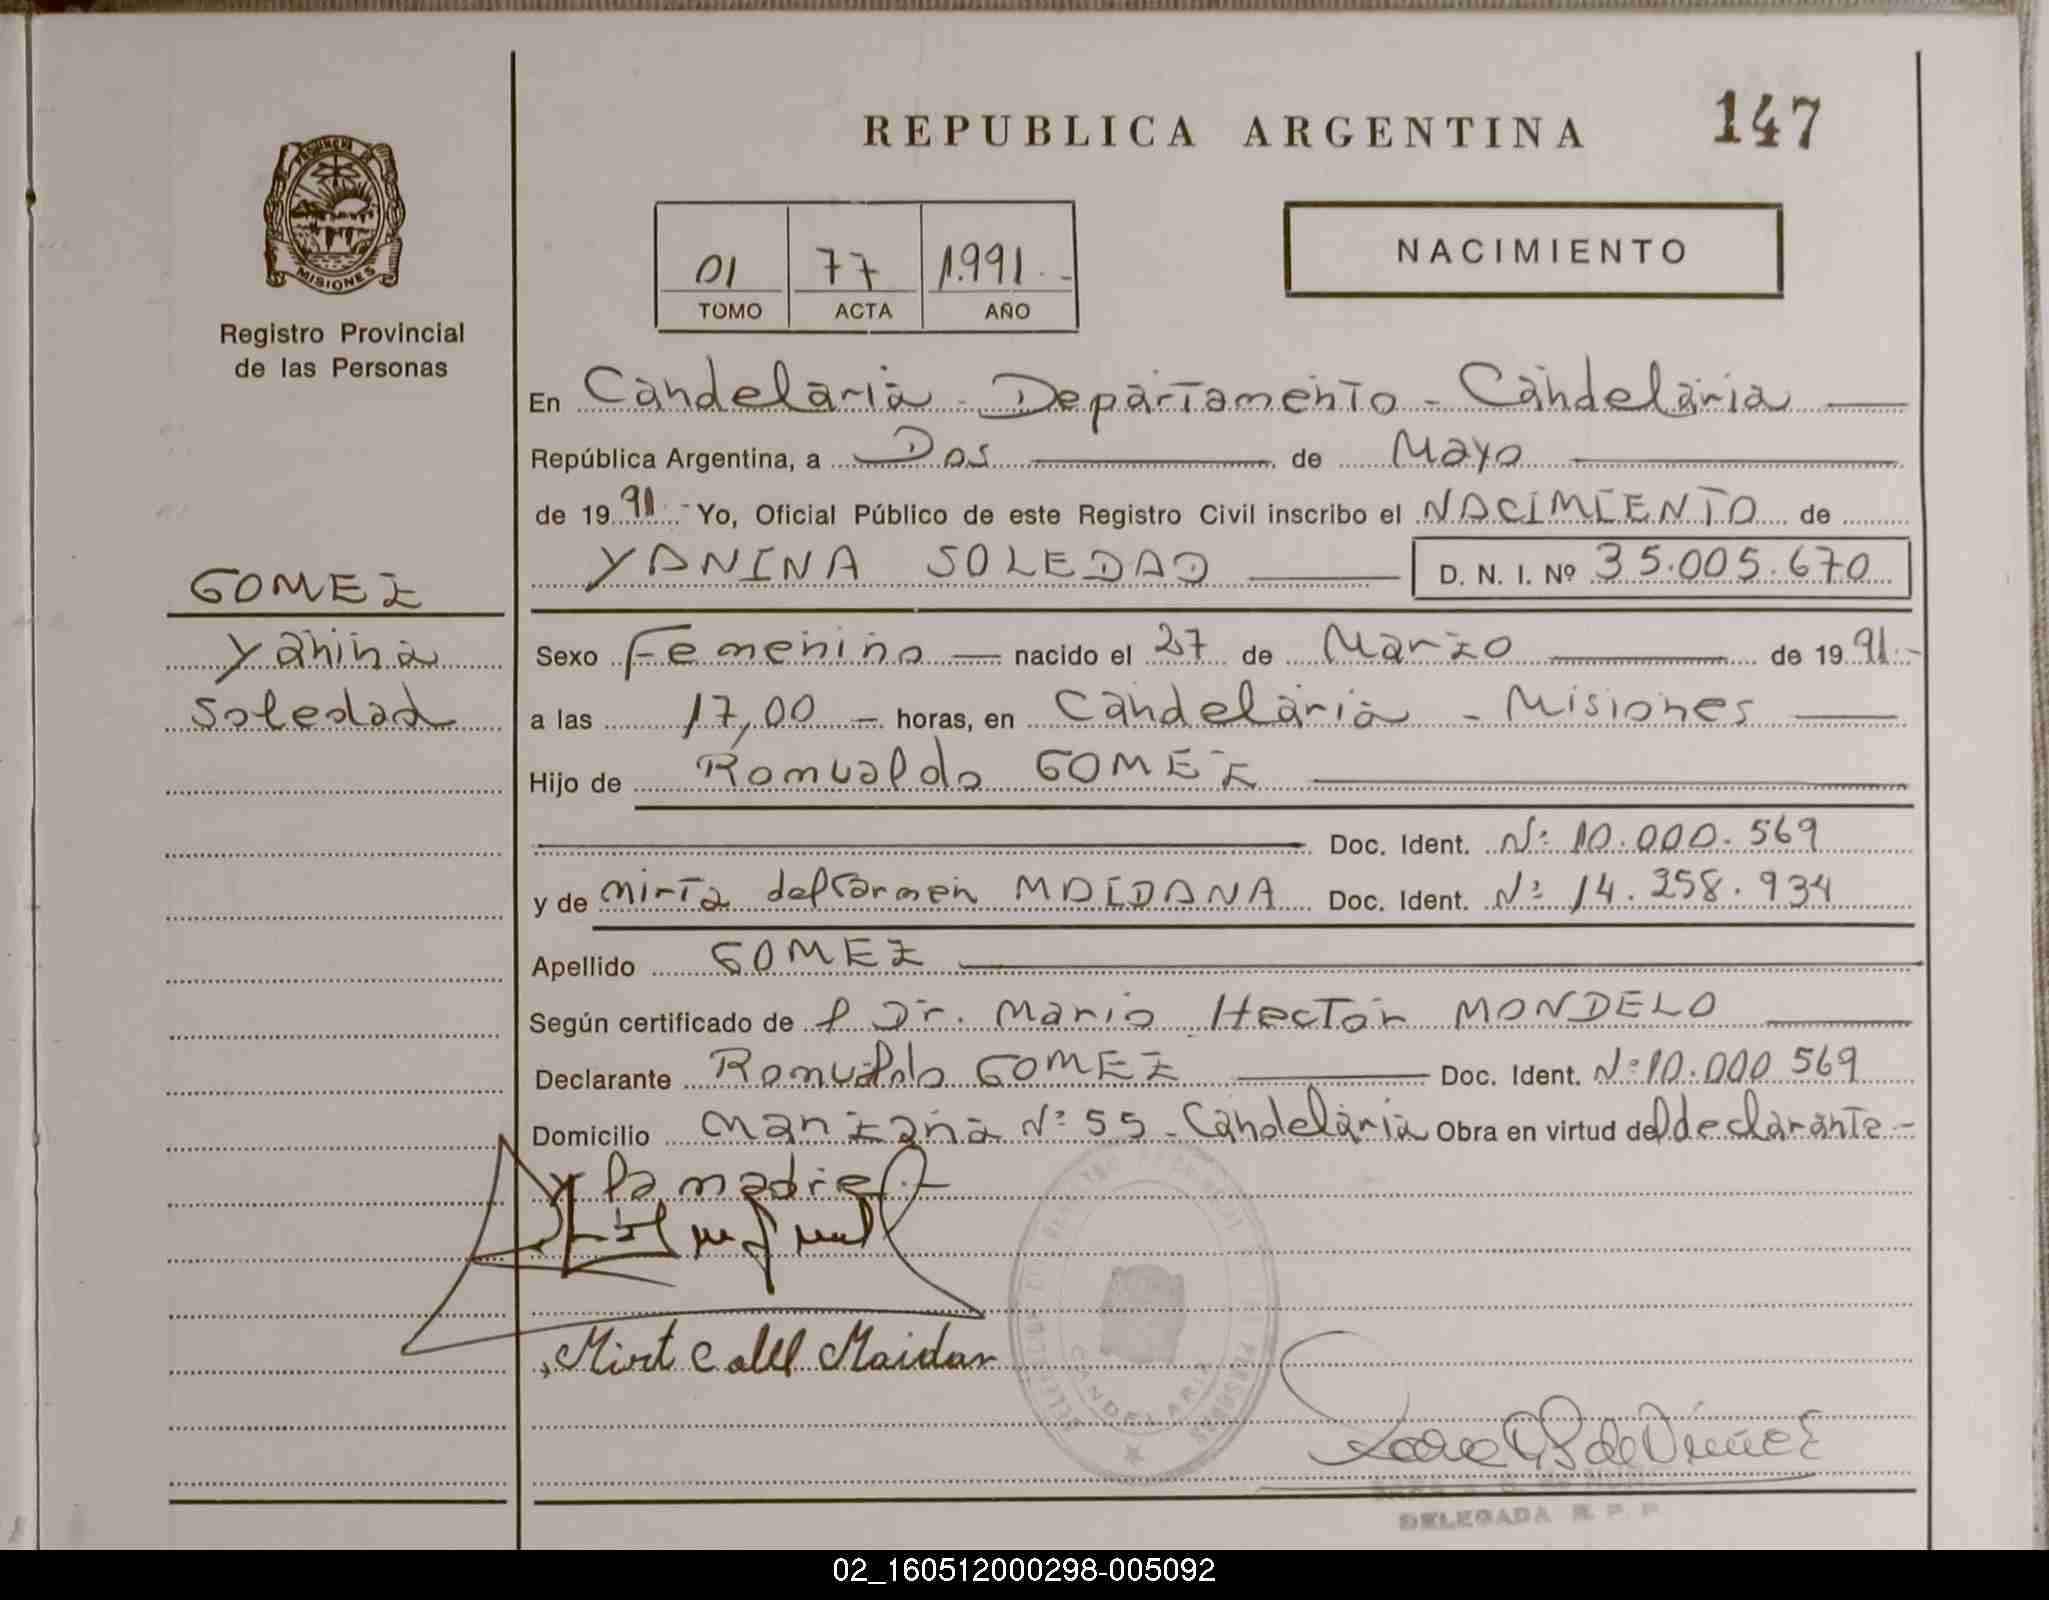 REPUBLICA ARGENTINA
147
PROVINCIA DE
MISIONES
Registro Provincial
de las Personas
01 77 1.991.-
TOMO ACTA AÑO
NACIMIENTO
En Candelaria - Departamento - Candelaria
República Argentina, a Dos de Mayo
de 1991.- Yo, Oficial Público de este Registro Civil inscribo el NACIMIENTO de
YANINA SOLEDAD D. N. I. Nº 35.005.670
GOMEZ
Yanina
Soledad
Sexo Femenino nacido el 27 de Marzo de 1991.-
a las 17,00 horas, en Candelaria - Misiones
Hijo de Romualdo GOMEZ
Doc. Ident. Nº 10.000.569
y de Mirta del Carmen MAIDANA Doc. Ident. Nº 14.258.934
Apellido GOMEZ
Según certificado del Dr. Mario Hector MONDELO
Declarante Romualdo GOMEZ Doc. Ident. Nº 10.000 569
Domicilio Manzana Nº 55 - Candelaria Obra en virtud del declarante -
y la madre.-
Mirt C dll Maidan
CANDELARIA
DELEGADA R. P. P.
02_160512000298-005092